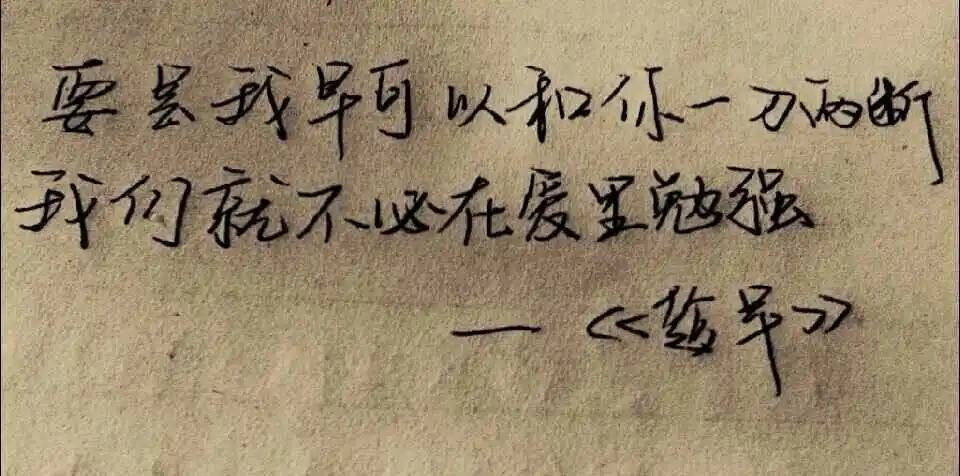 要是我早可以和你一刀两断
我们就不必在爱里勉强
—《趁早》